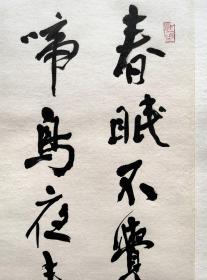 春眠不覺
啼鳥夜來